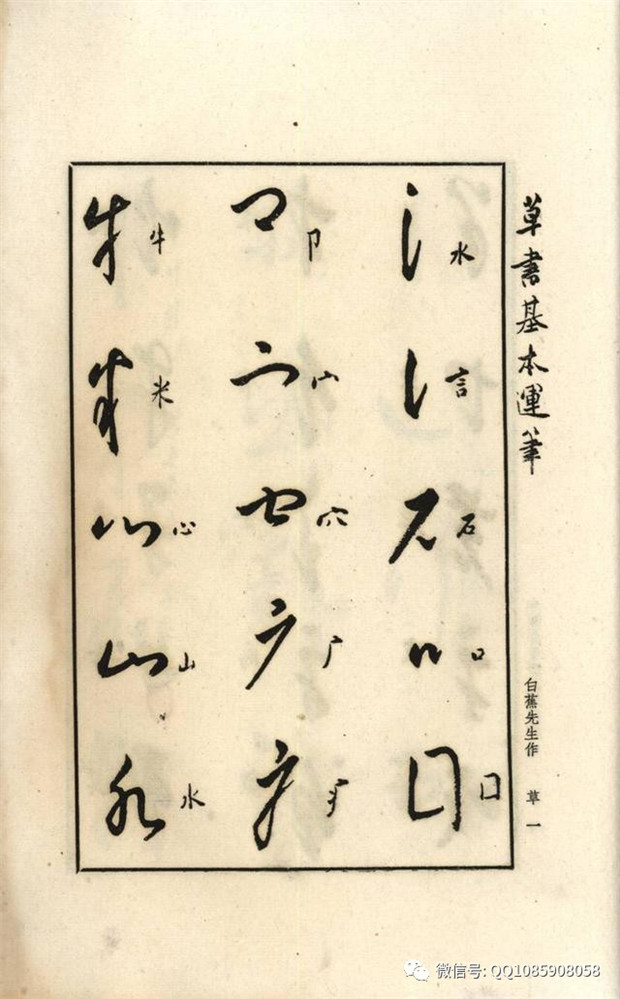 草書基本運筆
白蕉先生作 草一
水
言
石
口
囗
卩
宀
穴
广
疒
牛
米
心
山
水
微信号: QQ1085908058